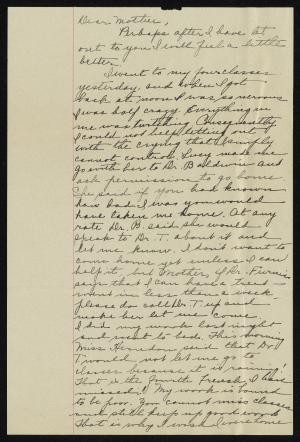 Dear Mother,
Perhaps after I have let
out to you I will feel a little
better.
I went to my four classes
yesterday, and when I got
back at noon I was so nervous
I was half crazy. Everything in
me was twitching. Consequently,
I could not help letting out
with the crying that I simply
cannot control. Lucy made me
go with her to Dr. Baldwin and
ask permission to go home.
She said if you had known
how bad I was you would
have taken me home. At any
rate Dr. B. said she would
speak to Dr. T. about it and
let me know. I don't want to
come home yet unless I can
help it, but Mother, if Dr.
says that I can have a treat-
ment in less than a week
please do call Dr. T. up and
make her let me come.
I did my work last night
and went to bed. This morning
Miss said that Dr.
T would not let me go to
classes because it is raining!
That is the fourth French I have
missed! My work is bound
to be poor. You cannot miss classes
and still keep up good work.
That is why I wish I were home